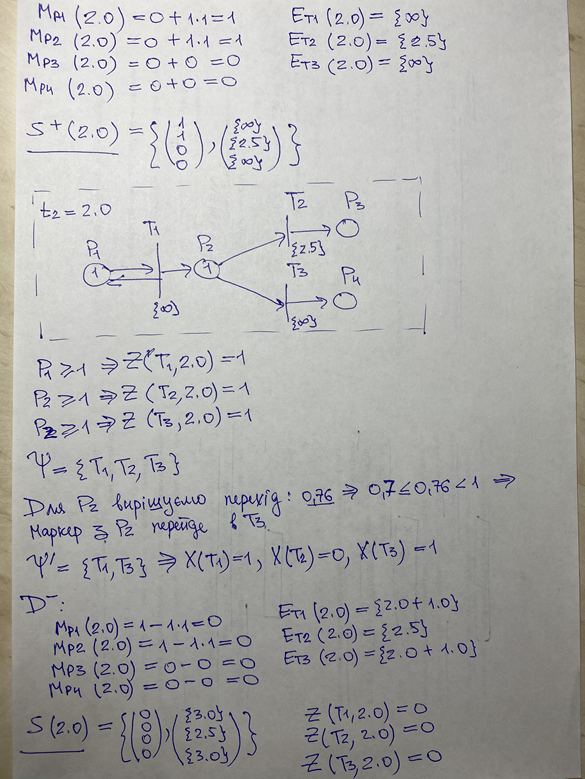 Mp1 (2.0) = 0 + 1·1 = 1 ET1 (2.0) = {∞}
Mp2 (2.0) = 0 + 1·1 = 1 ET2 (2.0) = {2.5}
Mp3 (2.0) = 0 + 0 = 0 ET3 (2.0) = {∞}
Mp4 (2.0) = 0 + 0 = 0
S+(2.0) = {(1 1 0 0), ({∞} {2.5} {∞})}
t2 = 2.0
T2 P3
T1
P1 P2
1 1
{2.5}
T3 P4
{∞} {∞}
P1 ⩾ 1 ⇒ Z(T1, 2.0) = 1
P2 ⩾ 1 ⇒ Z (T2, 2.0) = 1
P2 ⩾ 1 ⇒ Z (T3, 2.0) = 1
Ψ = {T1, T2, T3}
Для P2 вирішуємо перехід: 0,76 ⇒ 0,7 ≤ 0,76 < 1 ⇒
маркер з P2 перейде в T3.
Ψ' = {T1, T3} ⇒ X(T1)=1, X(T2)=0, X(T3)=1
D⁻:
Mp1 (2.0) = 1 − 1·1 = 0 ET1 (2.0) = {2.0 + 1.0}
Mp2 (2.0) = 1 − 1·1 = 0 ET2 (2.0) = {2.5}
Mp3 (2.0) = 0 − 0 = 0 ET3 (2.0) = {2.0 + 1.0}
Mp4 (2.0) = 0 − 0 = 0
S (2.0) = {(0 0 0 0), ({3.0} {2.5} {3.0})}
Z (T1, 2.0) = 0
Z(T2, 2.0) = 0
Z (T3, 2.0) = 0